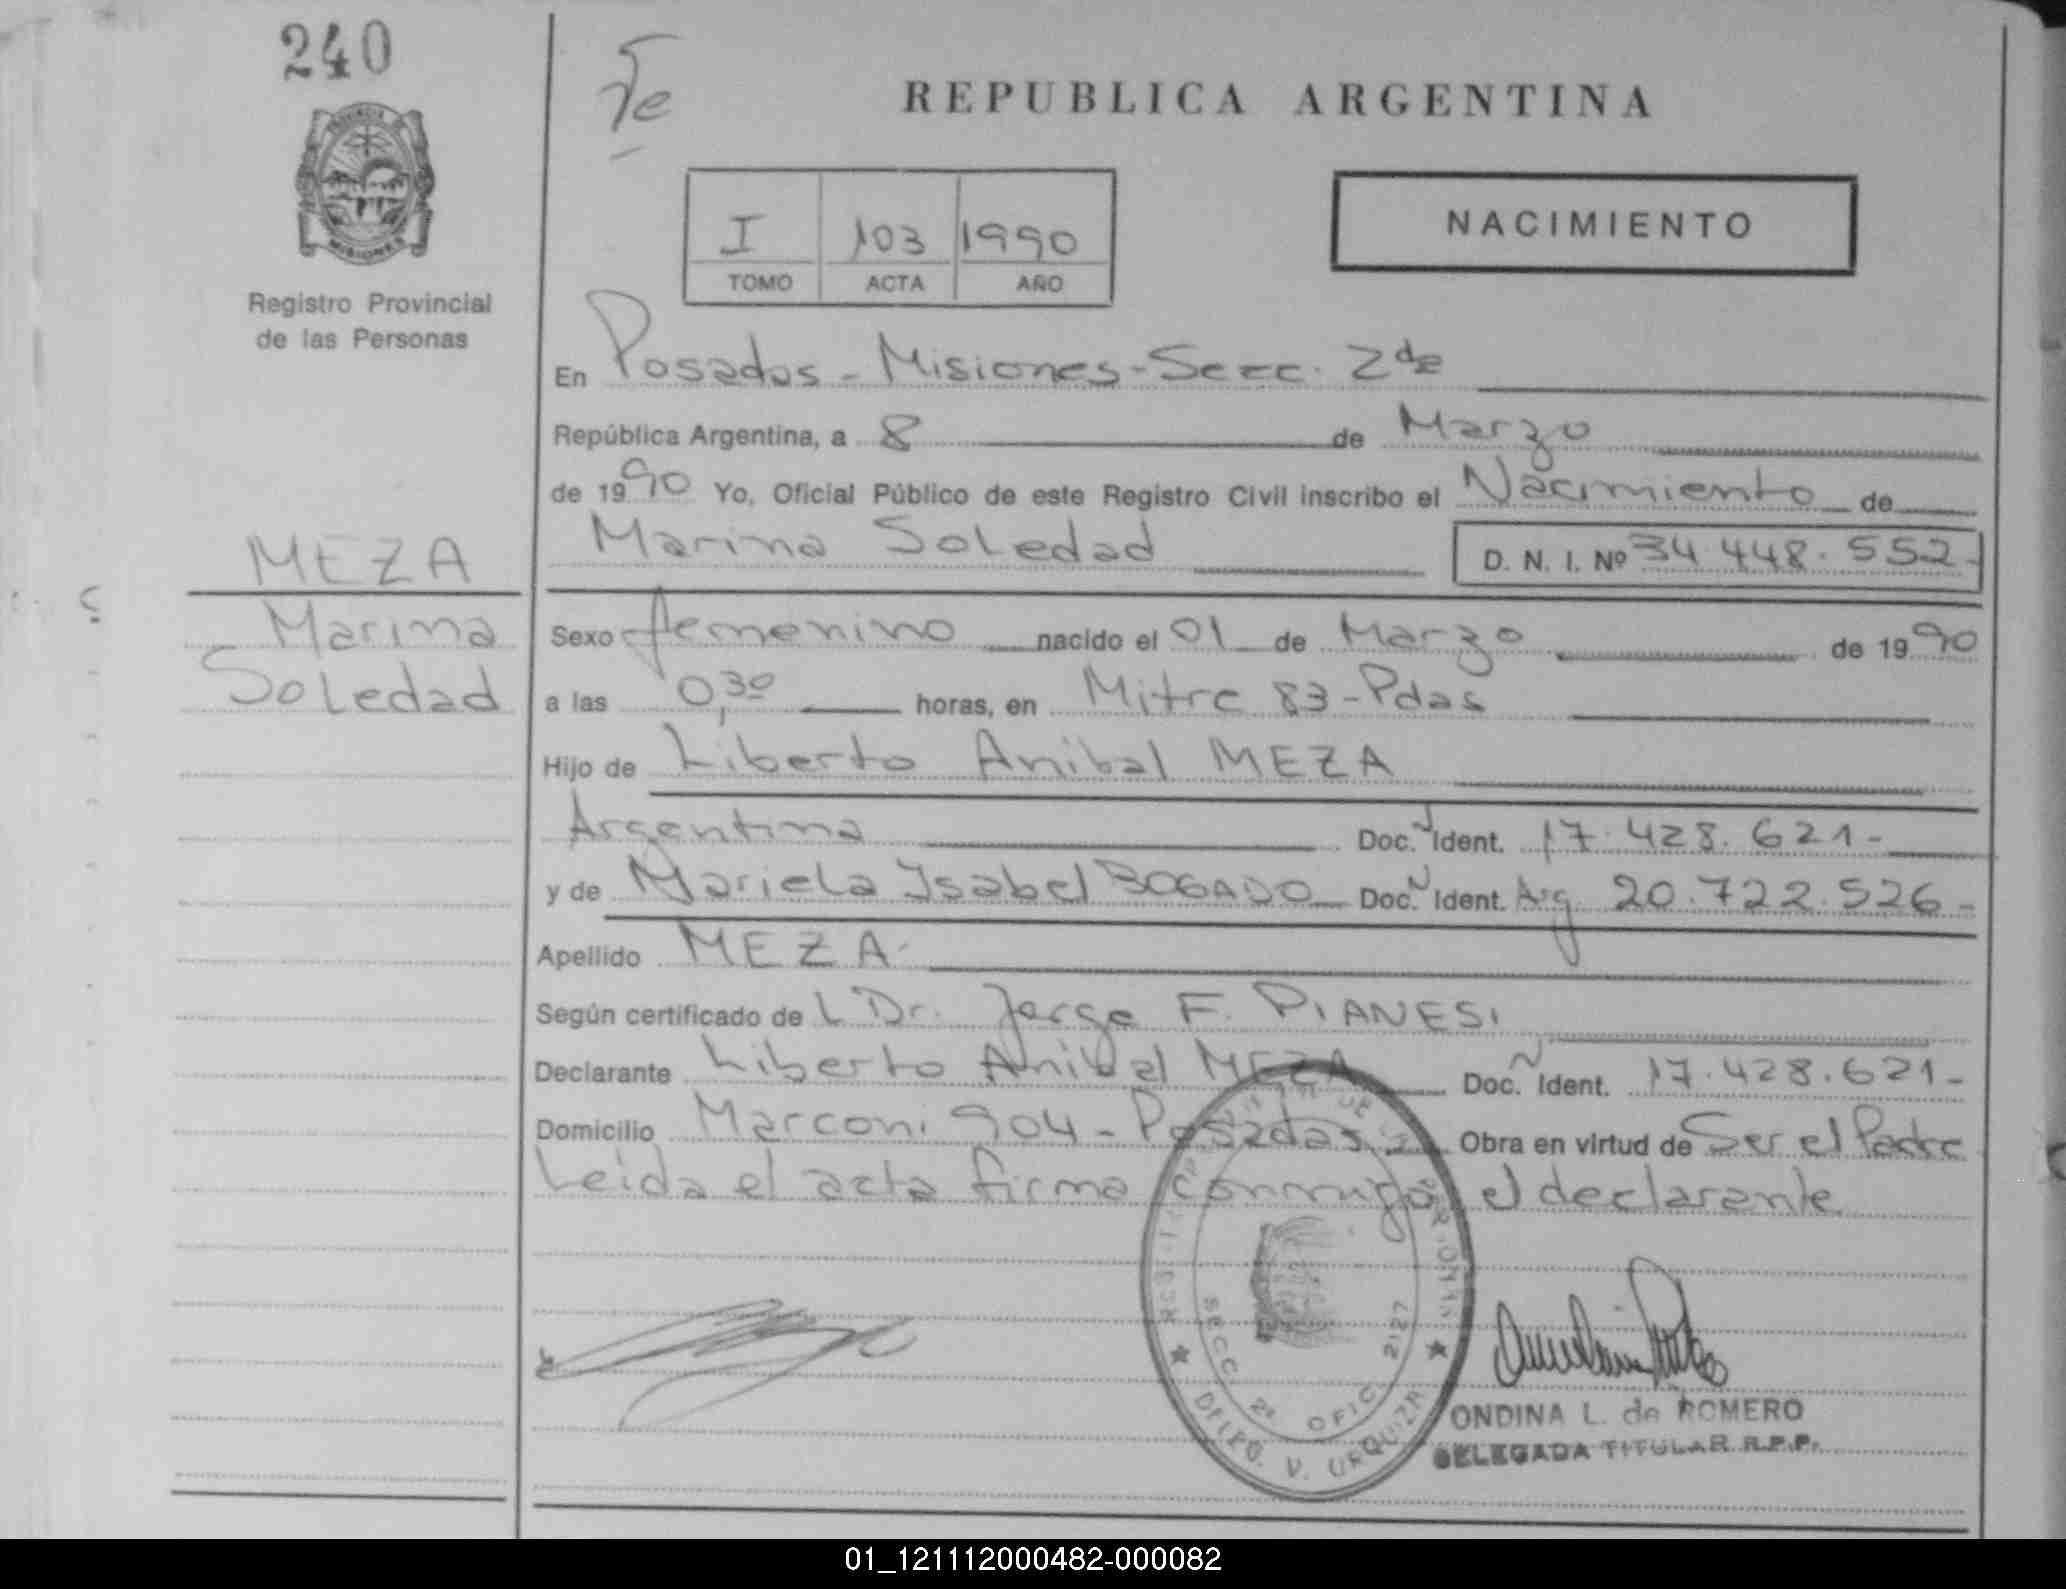 240
Te
REPUBLICA ARGENTINA
MISIONES
Registro Provincial
de las Personas
I 103 1990
TOMO ACTA AÑO
NACIMIENTO
En Posadas - Misiones - Secc. 2da
República Argentina, a 8 de Marzo
de 1990 Yo, Oficial Público de este Registro Civil inscribo el Nacimiento de
Marina Soledad D. N. I. Nº 34.448.552-
MEZA
Marina
Soledad
Sexo femenino nacido el 01 de Marzo de 1990
a las 0,30 horas, en Mitre 83 - Pdas
Hijo de Liberto Anibal MEZA
Argentina Doc. Ident. 17.428.621-
y de Mariela Isabel BOGADO Doc. Ident. Arg 20.722.526-
Apellido MEZA-
Según certificado de L Dr. Jorge F. PIANESI
Declarante Liberto Anibal MEZA Doc. Ident. 17.428.621-
Domicilio Marconi 904 - Posadas Obra en virtud de Ser el Padre
Leida el acta firma conmigo el declarante
SECC. 2ª OFIC. 2127
V. URQUIZA
ONDINA L. de ROMERO
DELEGADA TITULAR R.P.P.
01_121112000482-000082